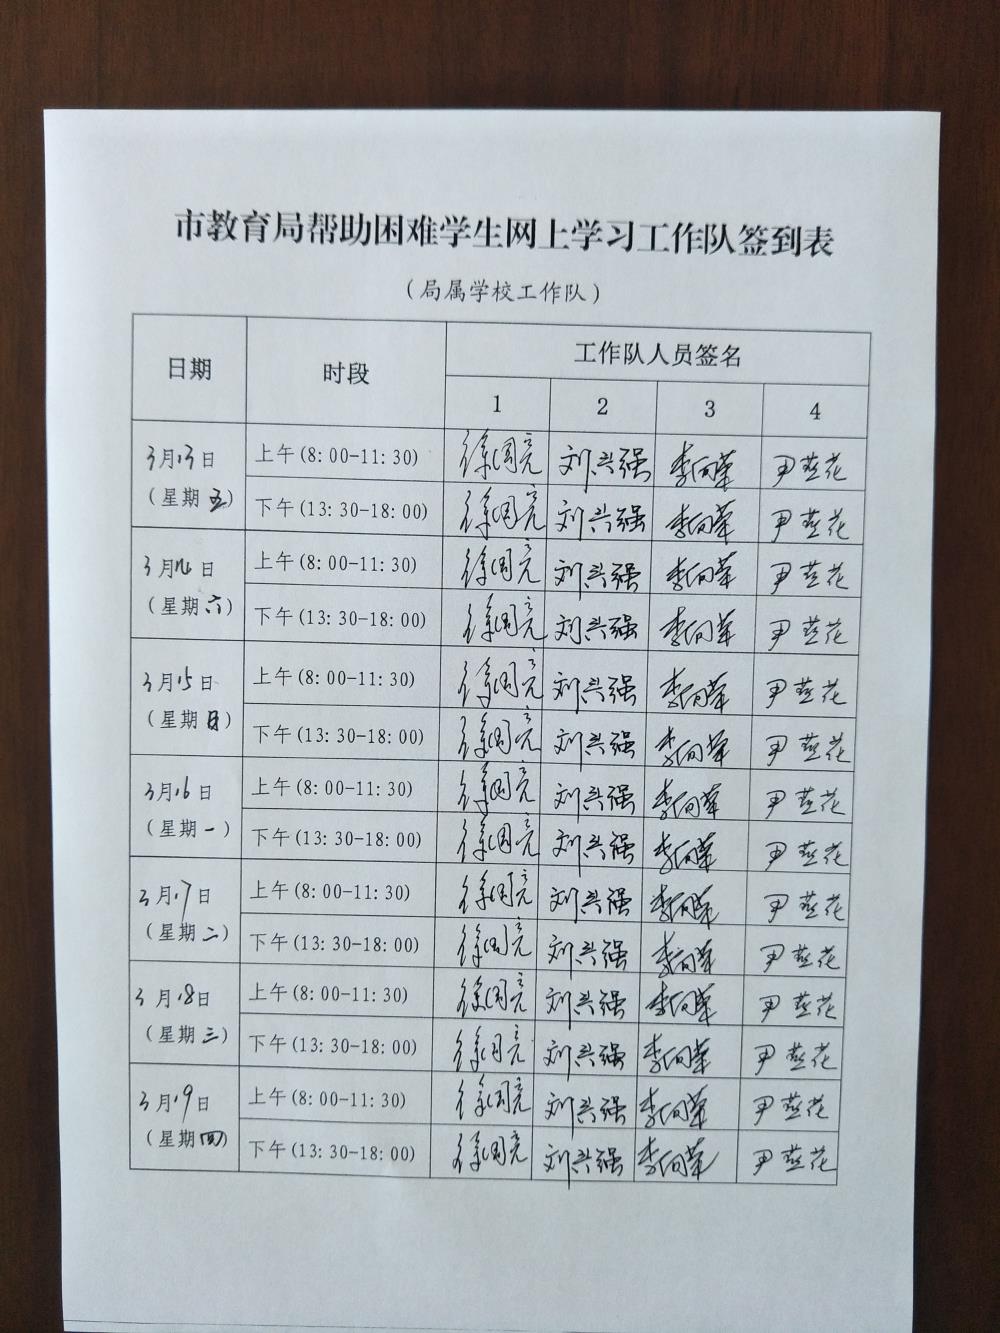 市教育局帮助困难学生网上学习工作队签到表
（局属学校工作队）
日期 时段 工作队人员签名
1 2 3 4
3月13日
（星期五）
上午(8:00-11:30) 徐国亮 刘兴强 李向荣 尹燕花
下午(13:30-18:00) 徐国亮 刘兴强 李向荣 尹燕花
3月14日
（星期六）
上午(8:00-11:30) 徐国亮 刘兴强 李向荣 尹燕花
下午(13:30-18:00) 徐国亮 刘兴强 李向荣 尹燕花
3月15日
（星期日）
上午(8:00-11:30) 徐国亮 刘兴强 李向荣 尹燕花
下午(13:30-18:00) 徐国亮 刘兴强 李向荣 尹燕花
3月16日
（星期一）
上午(8:00-11:30) 徐国亮 刘兴强 李向荣 尹燕花
下午(13:30-18:00) 徐国亮 刘兴强 李向荣 尹燕花
3月17日
（星期二）
上午(8:00-11:30) 徐国亮 刘兴强 李向荣 尹燕花
下午(13:30-18:00) 徐国亮 刘兴强 李向荣 尹燕花
3月18日
（星期三）
上午(8:00-11:30) 徐国亮 刘兴强 李向荣 尹燕花
下午(13:30-18:00) 徐国亮 刘兴强 李向荣 尹燕花
3月19日
（星期四）
上午(8:00-11:30) 徐国亮 刘兴强 李向荣 尹燕花
下午(13:30-18:00) 徐国亮 刘兴强 李向荣 尹燕花